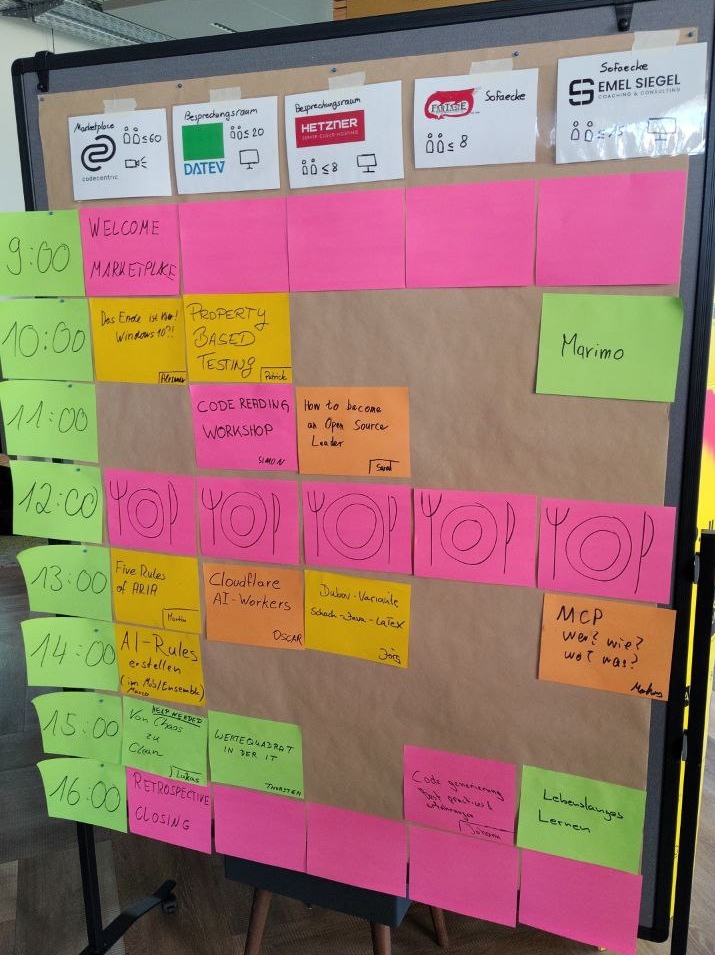 Marketplace
≤60
codecentric
Besprechungsraum
≤20
DATEV
Besprechungsraum
HETZNER
≤8
Sofaecke
≤ 8
Sofaecke
EMEL SIEGEL
COACHING & CONSULTING
9:00
WELCOME
MARKETPLACE
10:00
Das Ende ist
Windows 10?!
PROPERTY
BASED
TESTING
Patrick
Marimo
11:00
CODE READING
WORKSHOP
SIMON
How to become
an Open Source
Leader
12:00
13:00
Five Rules
of ARIA
Martin
Cloudflare
AI-Workers
OSCAR
Dubov-Variante
Schach-Java-LaTeX
Jörg
MCP
wer? wie?
wo? was?
Markus
14:00
AI-Rules
erstellen
(im Mob/Ensemble)
Marco
15:00
HELP NEEDED
Von Chaos
zu
Clean
Lukas
WERTEQUADRAT
IN DER IT
THORSTEN
Code generierung
Best practices &
Johann
Lebenslanges
Lernen
16:00
RETROSPECTIVE
CLOSING